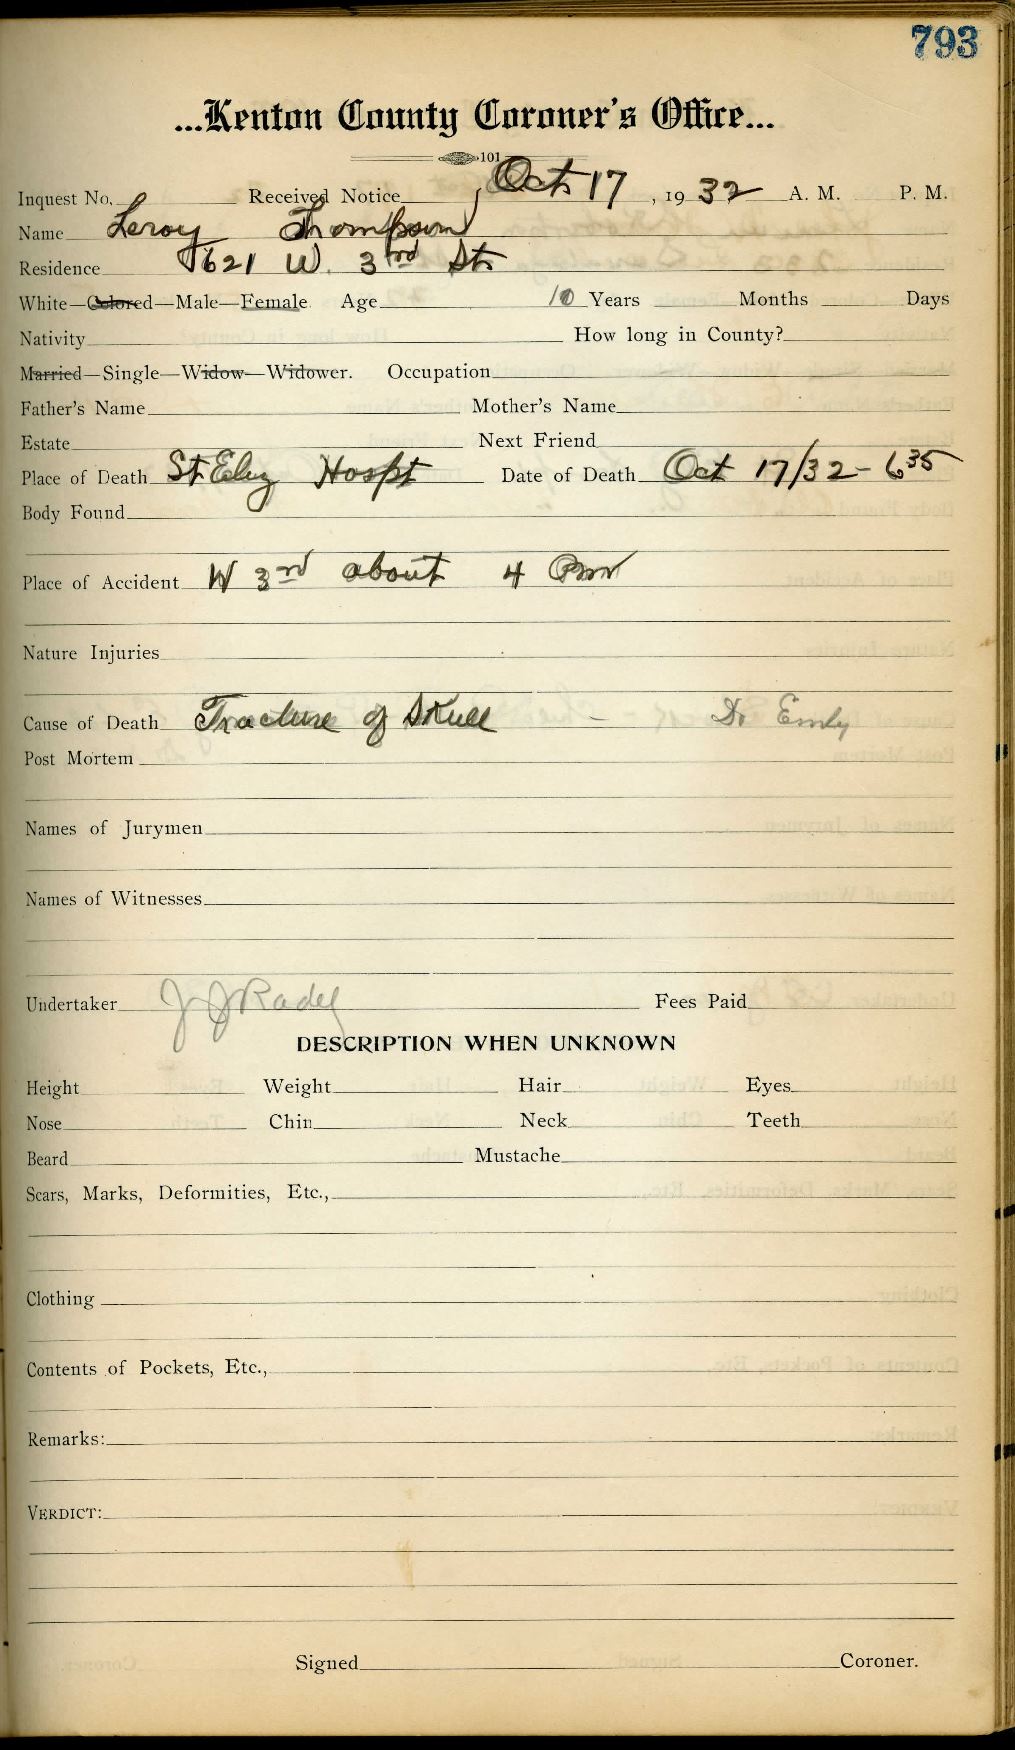 793
...Kenton County Coroner's Office...
101
Inquest No. Received Notice Oct 17, 1932 A. M. P. M.
Name Leroy Thompson
Residence 621 W. 3rd St
White—Colored—Male—Female Age 10 Years Months Days
Nativity How long in County?
Married—Single—Widow—Widower. Occupation
Father's Name Mother's Name
Estate Next Friend
Place of Death St Eliz Hospt Date of Death Oct 17/32 - 6 35
Body Found
Place of Accident W 3rd about 4 Pm
Nature Injuries
Cause of Death Fracture of Skull — Dr
Post Mortem
Names of Jurymen
Names of Witnesses
Undertaker J J Radel Fees Paid
DESCRIPTION WHEN UNKNOWN
Height Weight Hair Eyes
Nose Chin Neck Teeth
Beard Mustache
Scars, Marks, Deformities, Etc.,
Clothing
Contents of Pockets, Etc.,
Remarks:
VERDICT:
Signed Coroner.